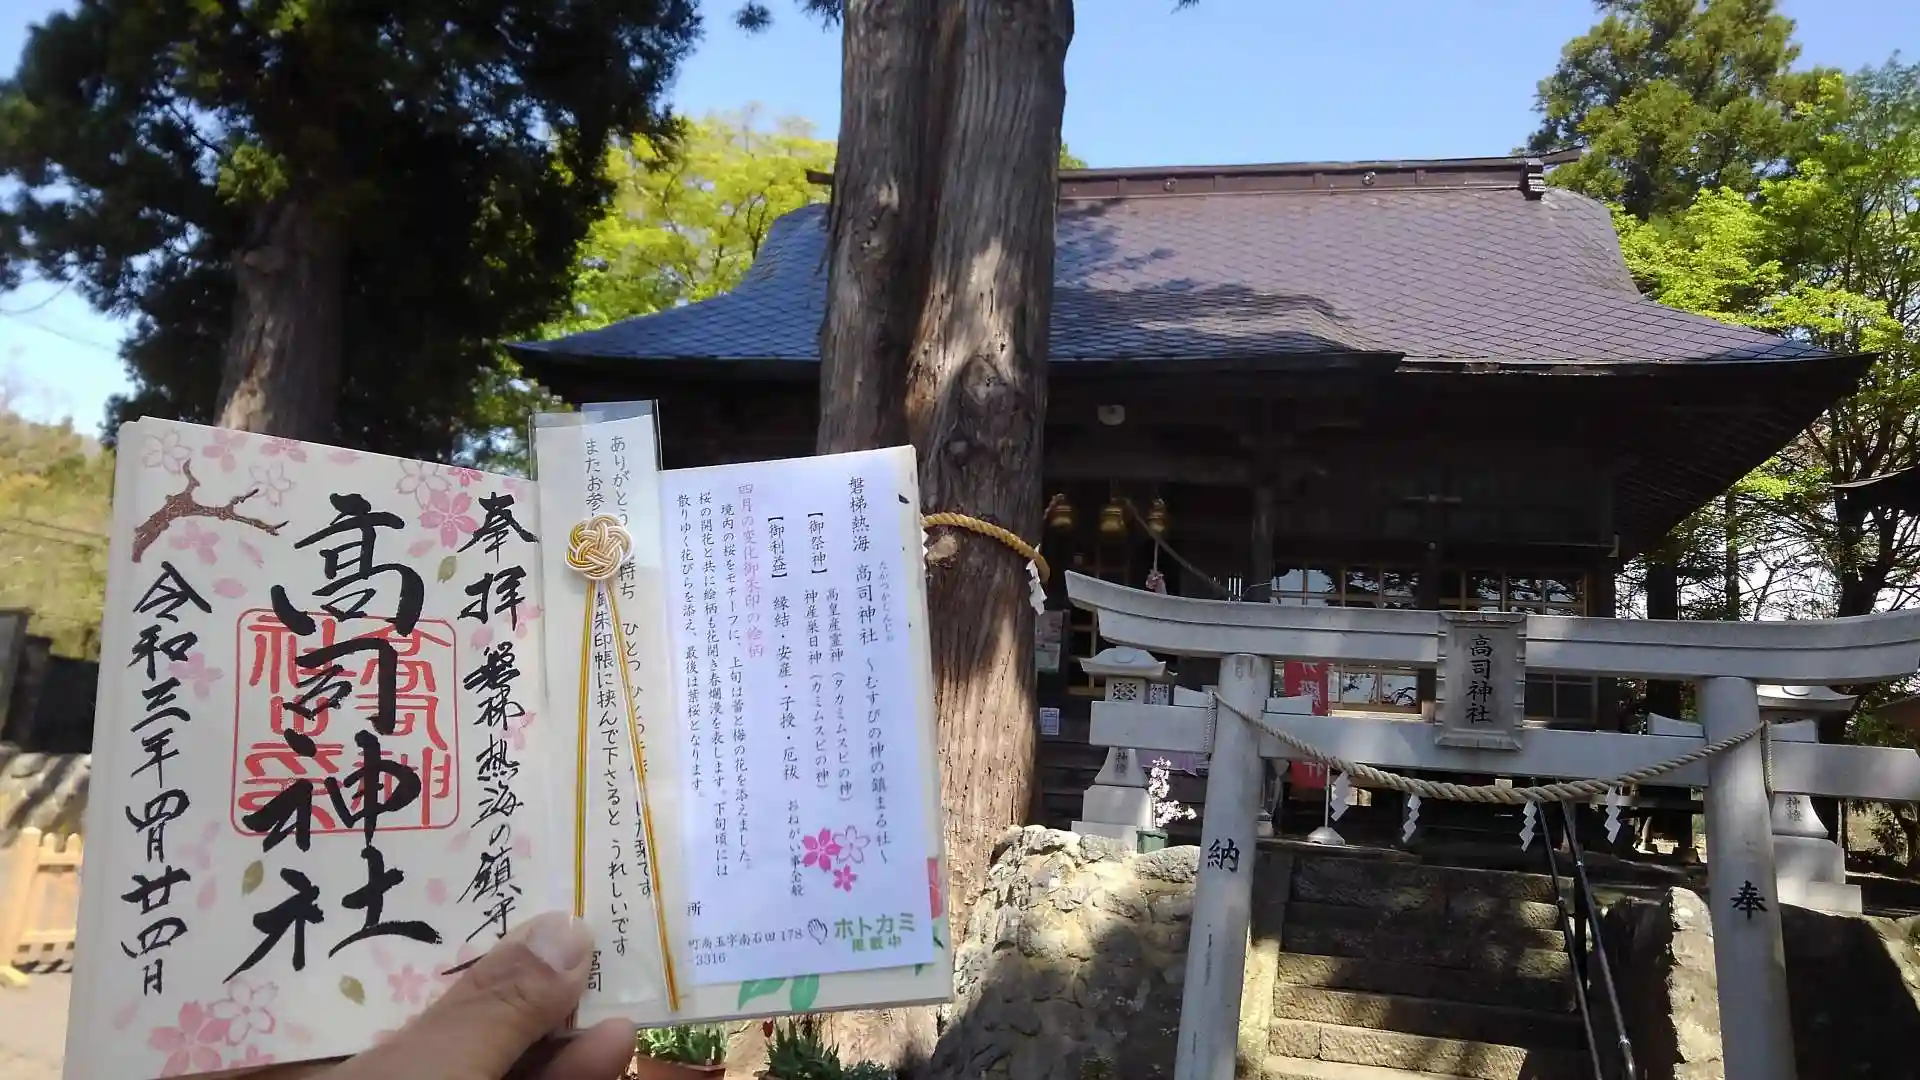 奉拝
磐梯熱海の鎮守
高司神社
令和三年四月廿四日
ありがとう
またお参
持ち ひとつ ひとつ
御朱印帳に挟んで下さると うれしいです
宮司
磐梯熱海 高司神社 ～むすびの神の鎮まる社～
たかつかじんじゃ
【御祭神】 高皇産霊神（タカミムスビの神）
神産巣日神（カミムスビの神）
【御利益】 縁結・安産・子授・厄祓 おねがい事全般
四月の変化御朱印の絵柄
境内の桜をモチーフに、上旬は蕾と梅の花を添えました。
桜の開花と共に絵柄も花開き春爛漫を表します。下旬頃には
散りゆく花びらを添え、最後は葉桜となります。
所
町高玉字南石田178
-3316
ホトカミ
掲載中
高司神社
奉
納
神燈
神燈